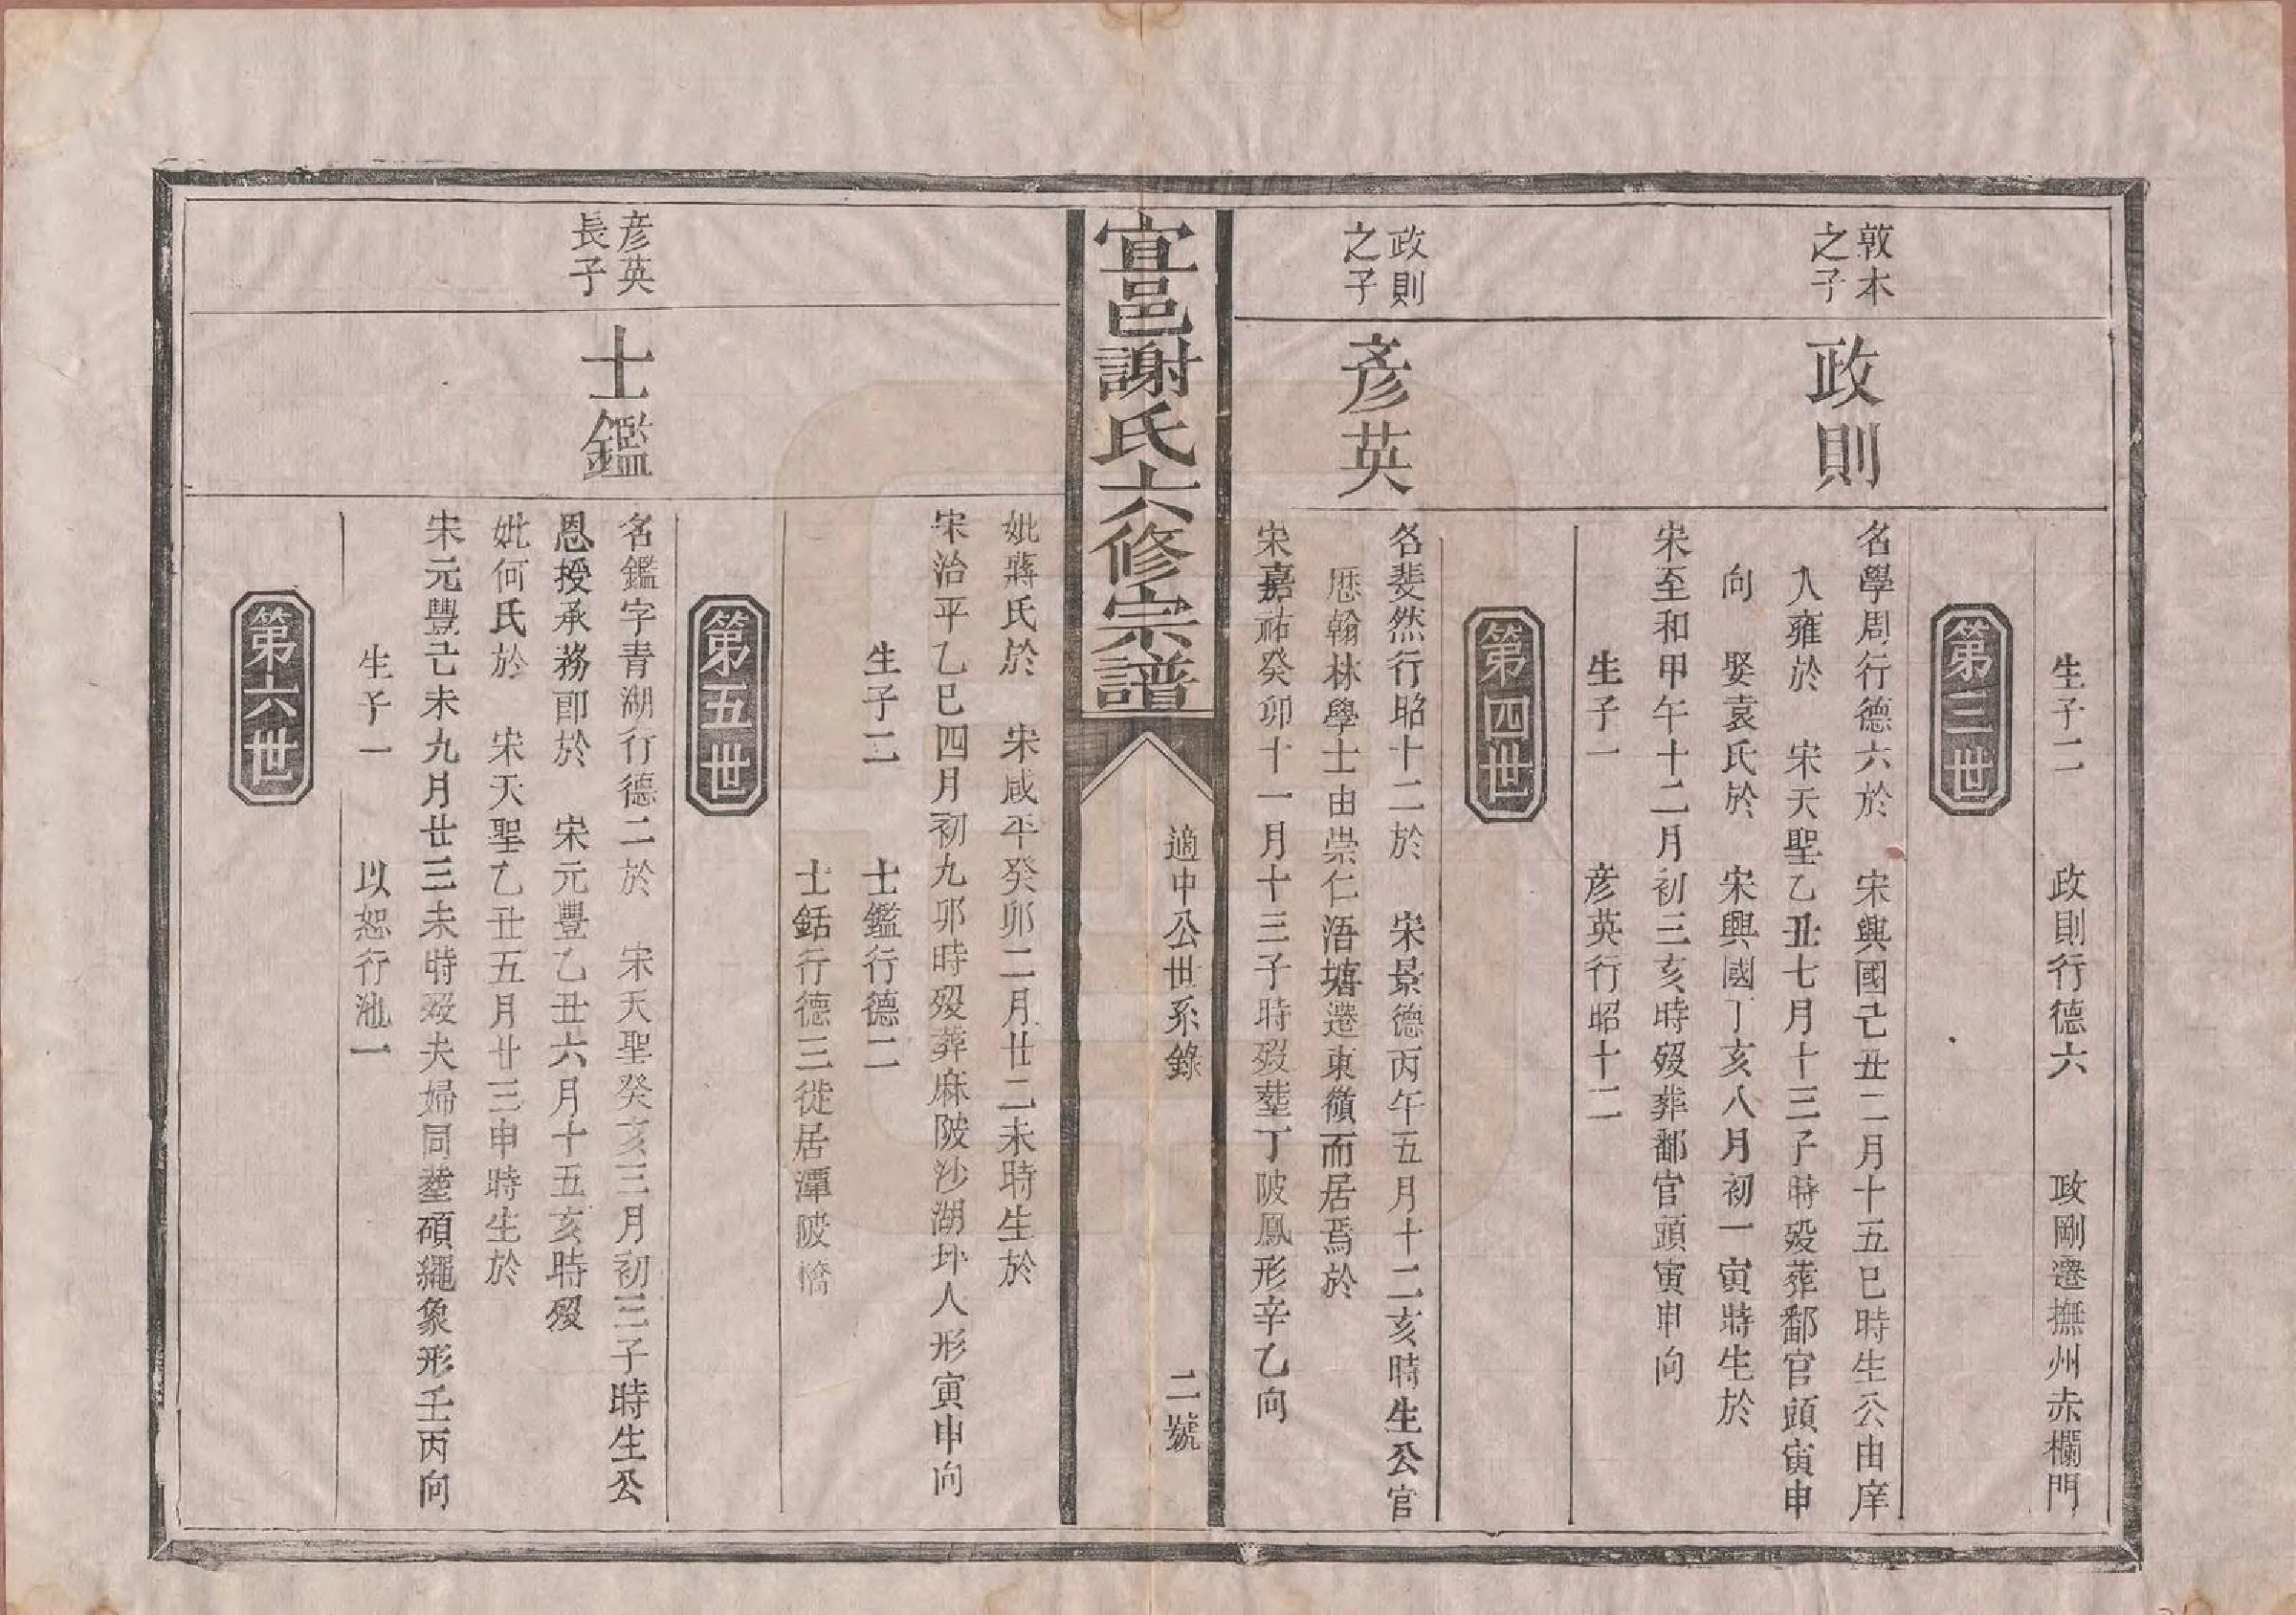 生子二 政則行德六 政剛遷撫州赤欄門
第三世
敦木
之子
政則
名學周行德六於 宋興國己丑二月十五巳時生公由庠
入雍於 宋天聖乙丑七月十三子時歿葬鄱官頭寅申
向 娶袁氏於 宋興國丁亥八月初一寅時生於
宋至和甲午十二月初三亥時歿葬鄱官頭寅申向
生子一 彦英行昭十二
第四世
政則
之子
彦英
名斐然行昭十二於 宋景德丙午五月十二亥時生公官
歷翰林學士由崇仁浯塘遷東嶺而居焉於
宋嘉祐癸卯十一月十三子時歿塟丁陂鳳形辛乙向
宜邑謝氏六修宗譜
適中公世系錄
二號
妣蔣氏於 宋咸平癸卯二月廿二未時生於
宋治平乙巳四月初九卯時歿葬麻陂沙湖坪人形寅申向
生子二 士鑑行德二
士銛行德三徙居潭陂橋
第五世
彦英
長子
士鑑
名鑑字青湖行德二於 宋天聖癸亥三月初三子時生公
恩授承務郎於 宋元豐乙丑六月十五亥時歿
妣何氏於 宋天聖乙丑五月廿三申時生於
宋元豐己未九月廿三未時歿夫婦同塟碩繩象形壬丙向
生子一 以恕行池一
第六世